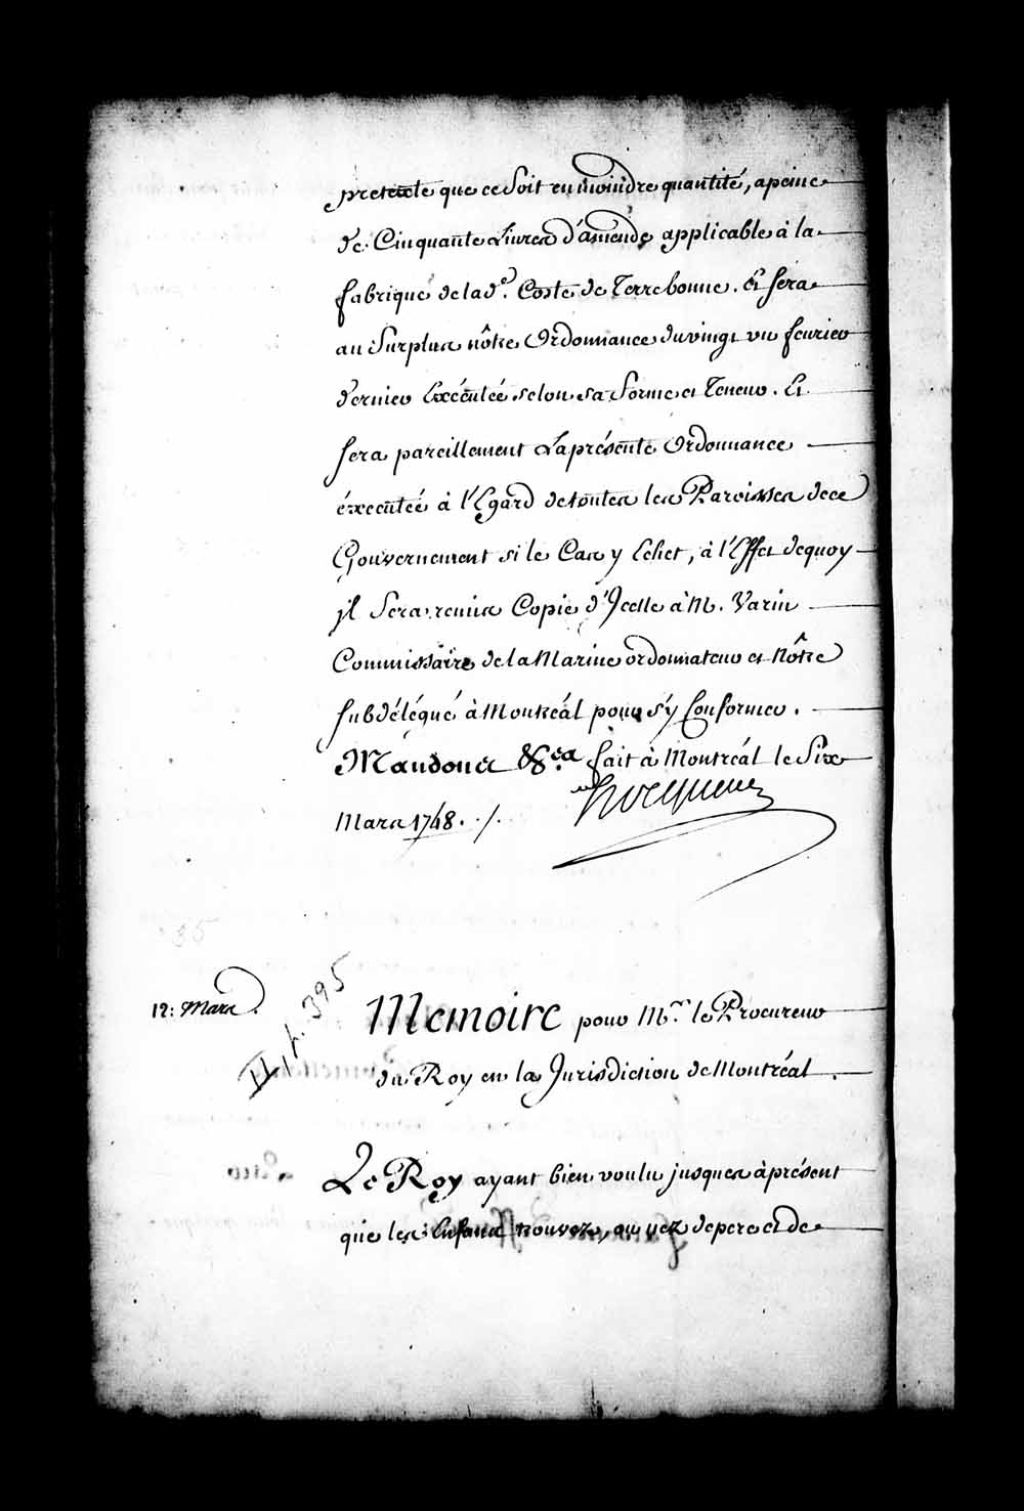 pretexte que ce Soit en moindre quantité, apeine
de Cinquante Livres d'amende applicable à la
fabrique de lad.e Coste de Terrebonne. Et sera
au Surplus nôtre Ordonnance du vingt un feurier
dernier Exécutée selon sa forme et Teneur. Et
sera pareillement Laprésente Ordonnance
éxecutée à l'Egard de toutes les Paroisses de ce
Gouvernement si le Cas y Echet, à l'Effet dequoy
jl Sera remis Copie d'Jcelle à M. Varin
Commissaire de la Marine ordonnateur et Nôtre
subdélégué à Montréal pour s'y Conformer.
Mandons &.ca fait à Montréal le Six
Mars 1748. ./.
Hocquart
12: Mars.
II, p. 395
Memoire pour M.r le Procureur
du Roy en la Jurisdiction de Montréal.
Le Roy ayant bien voulu jusques àprésent
que les Enfans trouvez, ou nez de pere et de